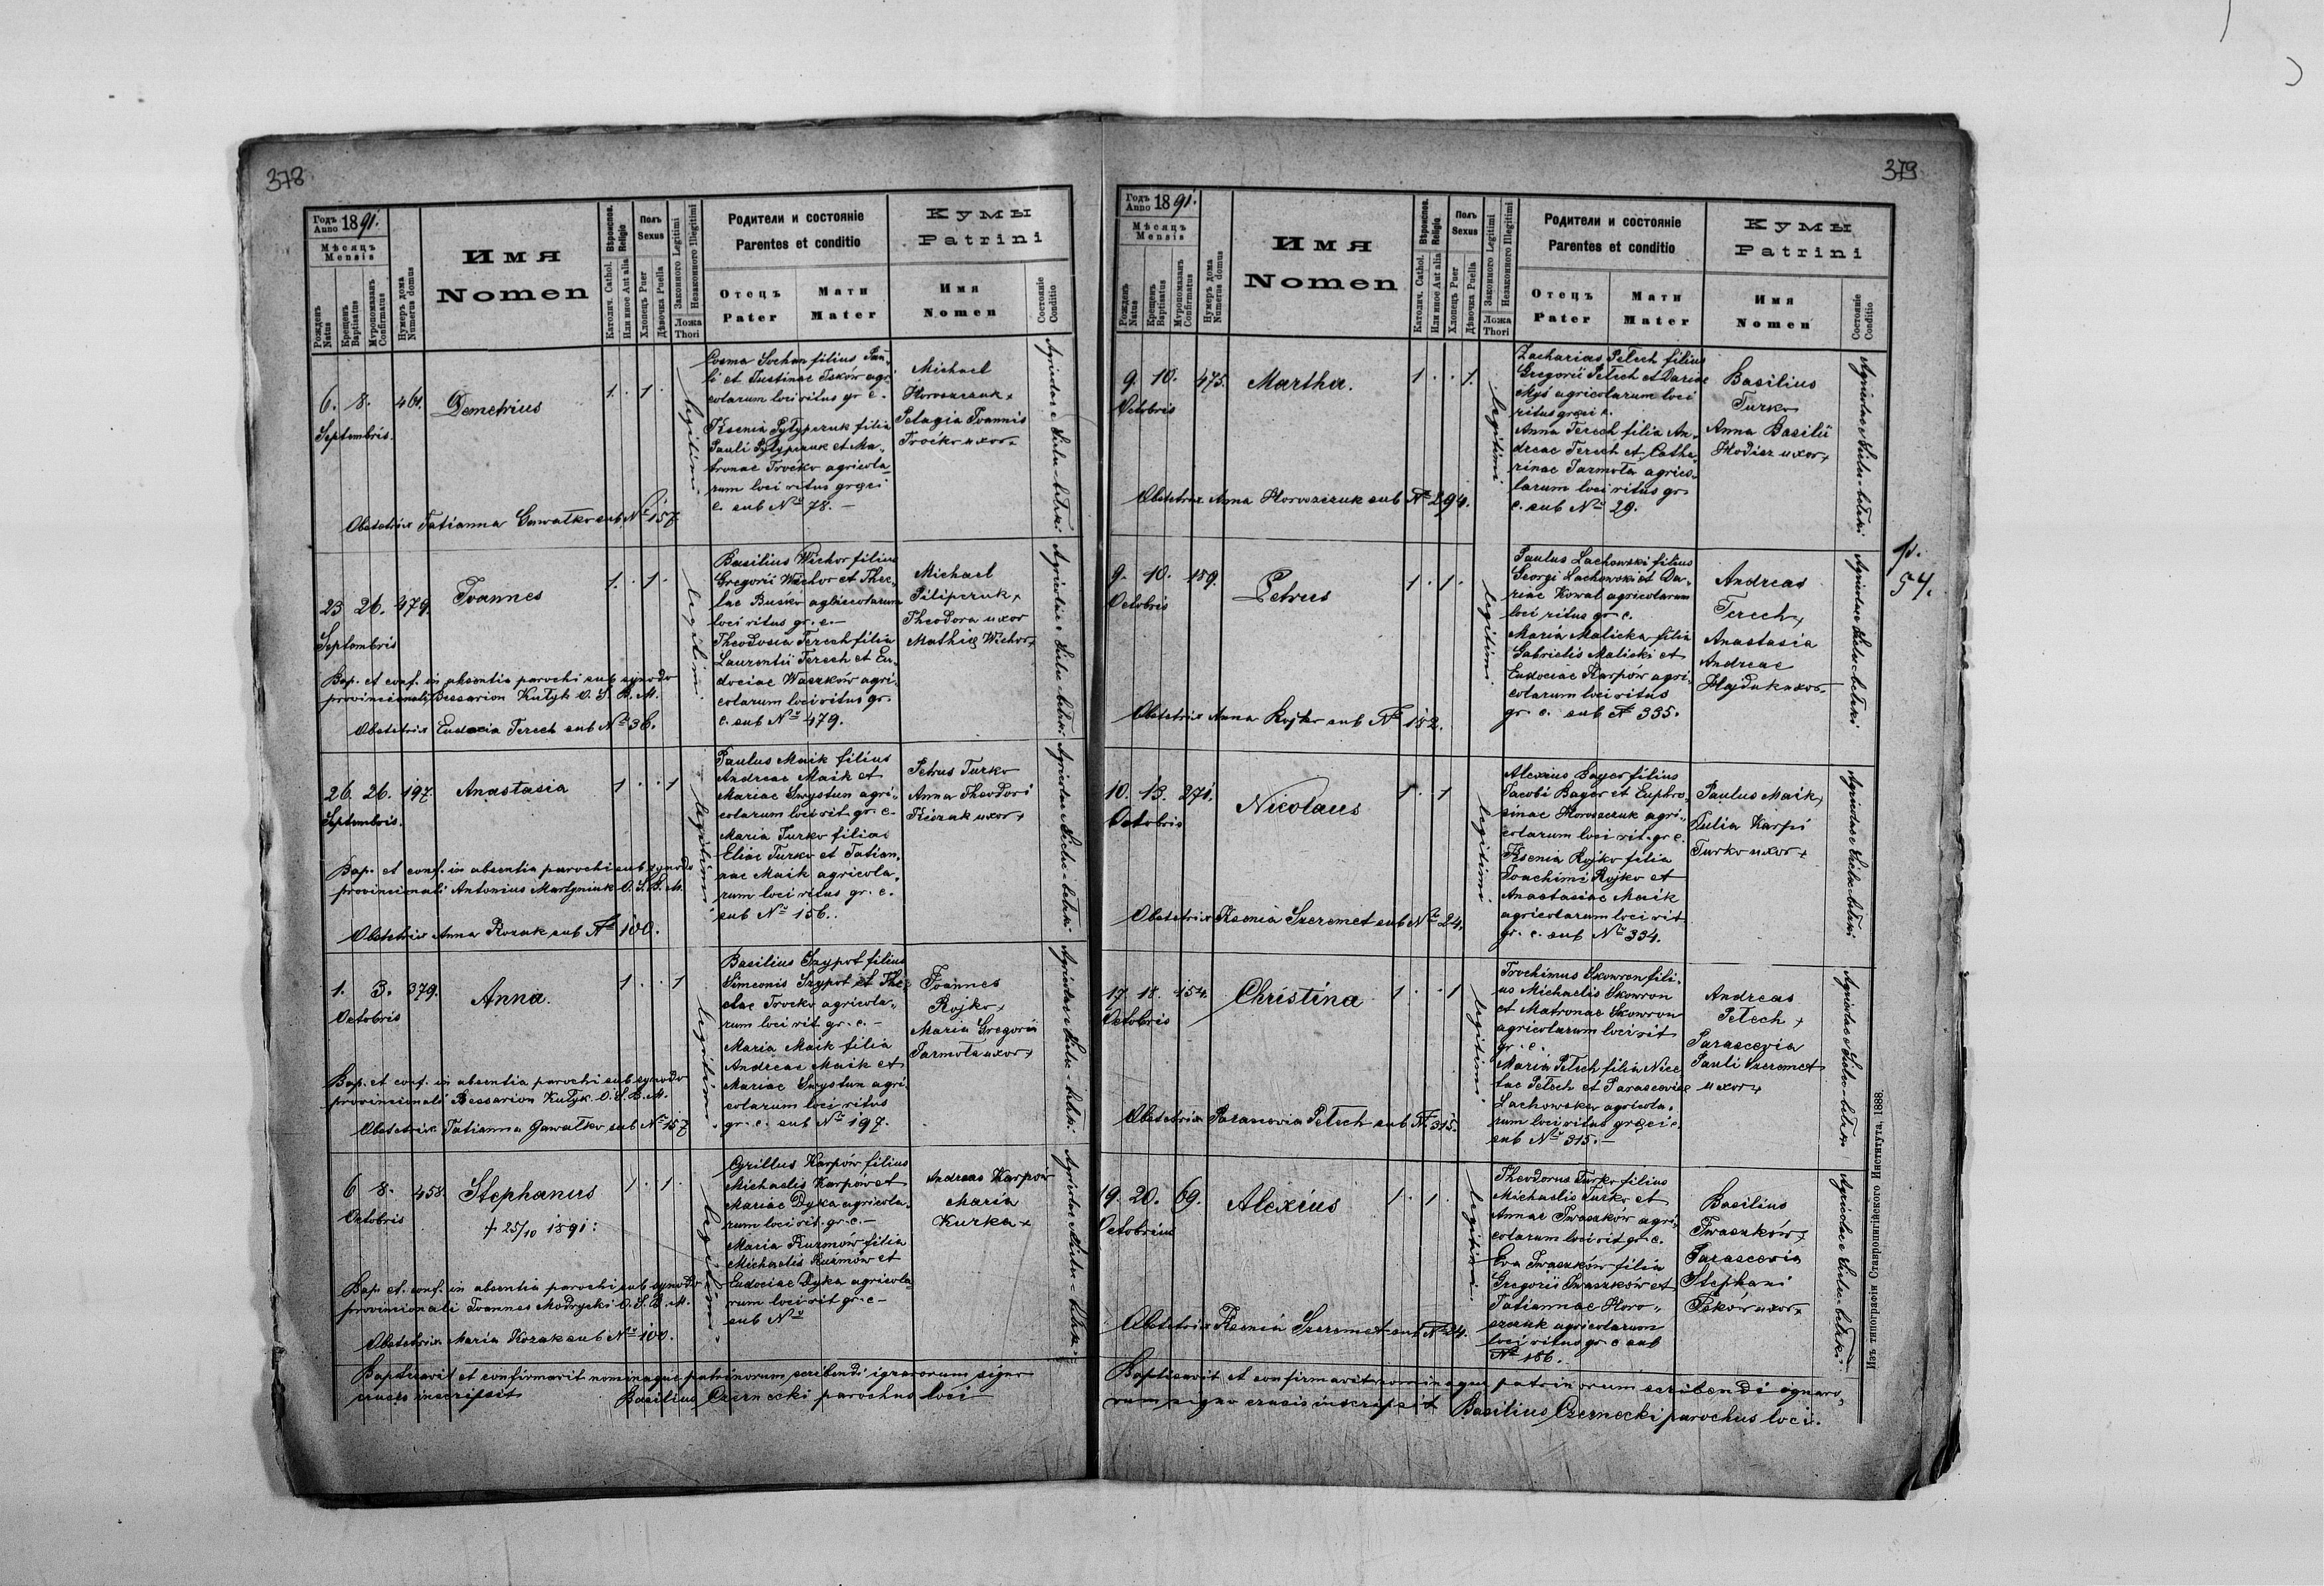 378
Годъ Anno 1891.
Мѣсяцъ
Mensis
Рожденъ Natus
Крещенъ Baptisatus
Муропомазанъ Confirmatus
Нумеръ дома Numerus domus
Имя
Nomen
Вѣроиспов. Religio
Католич. Cathol.
Или иное Aut alia
Полъ
Sexus
Хлопецъ Puer
Дѣвочка Puella
Законного Legitimi
Незаконного Illegitimi
Ложа
Thori
Родители и состояніе
Parentes et conditio
Отецъ
Pater
Мати
Mater
Кумы
Patrini
Имя
Nomen
Состояніе
Conditio
6. 8. 461. Demetrius 1. . 1 .
Septembris.
legitimi
Cosma Sochan filius Pau-
li et Justinae Iśków agri
colarum loci ritus gr c.
Ksenia Pylypczuk filia
Pauli Pylypczuk et Ma-
tronae Troćko agricola-
rum loci ritus graeci
c. sub No 78. —
Michael
Horoszczuk +
Pelagia Joannis
Troćko uxor +
Obstetrix Tatianna Gawałko sub No 157
23 26. 479. Joannes 1. . 1 .
Septembris
legitimi
Basilius Wichor filius
Gregorii Wichor et Thec-
lae Buśko agricolarum
loci ritus gr. c. —
Theodosia Terech filia
Laurentii Terech et Eu-
dociae Waszków agri-
colarum loci ritus gr.
c. sub No 479.
Michael
Pilipczuk +
Theodora uxor
Mathiae Wichor +
Bap. et conf. in absentia parochi sub synodo
provincionali Bessarion Kułyk O. S. B. M.
Obstetrix Eudoxia Terech sub No 36.
26. 26. 197 Anastasia 1 . . 1
Septembris.
legitimi
Paulus Maik filius
Andreae Maik et
Mariae Swystun agri-
colarum loci rit. gr. c.
Maria Turko filia
Eliae Turko et Tatian-
nae Maik agricola-
rum loci ritus gr. c.
sub No 156.
Petrus Turko
Anna Theodori
uxor +
Bap. et conf. in absentia parochi sub synodo
provincionali Antonius Martyniuk O. S. B. M.
Obstetrix Anna Kozak sub No 100.
1. 3. 379. Anna. 1 . . 1
Octobris
legitimi
Basilius Szypot filius
Simeonis Szypot et The-
clae Trocko agricola-
rum loci rit gr. c. —
Maria Maik filia
Andreae Maik et
Mariae Swystun agri
colarum loci ritus
gr. c. sub No 197.
Joannes
Rojko +
Maria Gregorii
Jarmoła uxor +
Bap. et conf. in absentia parochi sub synodo
provincionali Bessarion Kułyk O. S. B. M.
Obstetrix Tatianna Gawałko sub No 157
6 8. 458. Stephanus 1 . 1 .
Octobris
+ 25/10 1891:
legitimi
Cyrillus Karpów filius
Michaelis Karpów et
Mariae Dyka agricola-
rum loci rit. gr. c. —
Maria Kuzmów filia
Michaelis Kuzmów et
Eudociae Dyka agricola
rum loci rit gr. c —
sub No
Andreas Karpów
Maria
Kurka +
Bap. et. conf. in absentia parochi sub synodo
provincionali Joannes Modrycki O. S. B. M.
Obstetrix Maria Kozak sub No 100.
Baptisavit et confirmavit nominaque patrinorum scribendi ignarorum signo
crucis inscripsit Basilius Czernecki parochus loci
379
Годъ Anno 1891.
Мѣсяцъ
Mensis
Рожденъ Natus
Крещенъ Baptisatus
Муропомазанъ Confirmatus
Нумеръ дома Numerus domus
Имя
Nomen
Вѣроиспов. Religio
Католич. Cathol.
Или иное Aut alia
Полъ
Sexus
Хлопецъ Puer
Дѣвочка Puella
Законного Legitimi
Незаконного Illegitimi
Ложа
Thori
Родители и состояніе
Parentes et conditio
Отецъ
Pater
Мати
Mater
Кумы
Patrini
Имя
Nomen
Состояніе
Conditio
9. 10. 475. Martha. 1 . . 1.
Octobris
legitimi
Zacharias Pełech filius
Gregorii Pełech et Dariae
Myś agricolarum loci
ritus graeci c.
Anna Terech filia An-
dreae Terech et Cathe-
rinae Jarmoła agrico-
larum loci ritus gr.
c. sub No 29.
Basilius
Turko
Anna Basilii
Hodisz uxor +
Obstetrix Anna Horoszczuk sub No 294.
9. 10. 189. Petrus 1 . 1 .
Octobris
legitimi
Paulus Lachowski filius
Georgi Lachowski et Da-
riae Kowal agricolarum
loci ritus gr c.
Maria Malicka filia
Gabrielis Malicki et
Eudociae Karpów agri-
colarum loci ritus
gr. c. sub No 335.
Andreas
Terech +
Anastasia
Andreae
Hajduk uxor +
Obstetrix Anna Rojko sub No 152.
54.
10. 13. 271. Nicolaus 1 . 1
Octobris
legitimi
Alexius Bayer filius
Jacobi Bayer et Euphro-
sinae Horoszczuk agri-
colarum loci rit. gr c.
Ksenia Rojko filia
Joachimi Rojko et
Anastasiae Maik
agricolarum loci rit
gr. c. sub No 334.
Paulus Maik +
Julia Karpi
Turko uxor +
Obstetrix Ksenia Szeremet sub No 24.
17. 18. 154. Christina 1 . . 1
Octobris
legitimi
Trochimus Skowron fili-
us Michaelis Skowron
et Matronae Skowron
agricolarum loci rit
gr. c.
Maria Pełech filia Nice
tae Pełech et Parasceviae
Lachowska agricola-
rum loci ritus graeci c.
sub No 315. —
Andreas
Pełech +
Parascevia
Pauli Szeremet
uxor +
Obstetrix Parascevia Pełech sub No 315.
19. 20. 69. Alexius 1 . 1 .
Octobris
legitimi
Theodorus Turko filius
Michaelis Turko et
Annae Iwaszków agri-
colarum loci rit gr c.
Eva Iwaszków filia
Gregorii Iwaszków et
Tatiannae Horo-
szczuk agricolarum
loci ritus gr c sub
No 186.
Basilius
Iwaszków +
Parascevia
Stephani
Iśków uxor +
Obstetrix Ksenia Szeremet sub No 24.
Baptisavit et confirmavit nominaque patrinorum scribendi ignaro-
rum signo crucis inscripsit Basilius Czernecki parochus loci.
Изъ типографіи Ставропигійского Института. 1888.